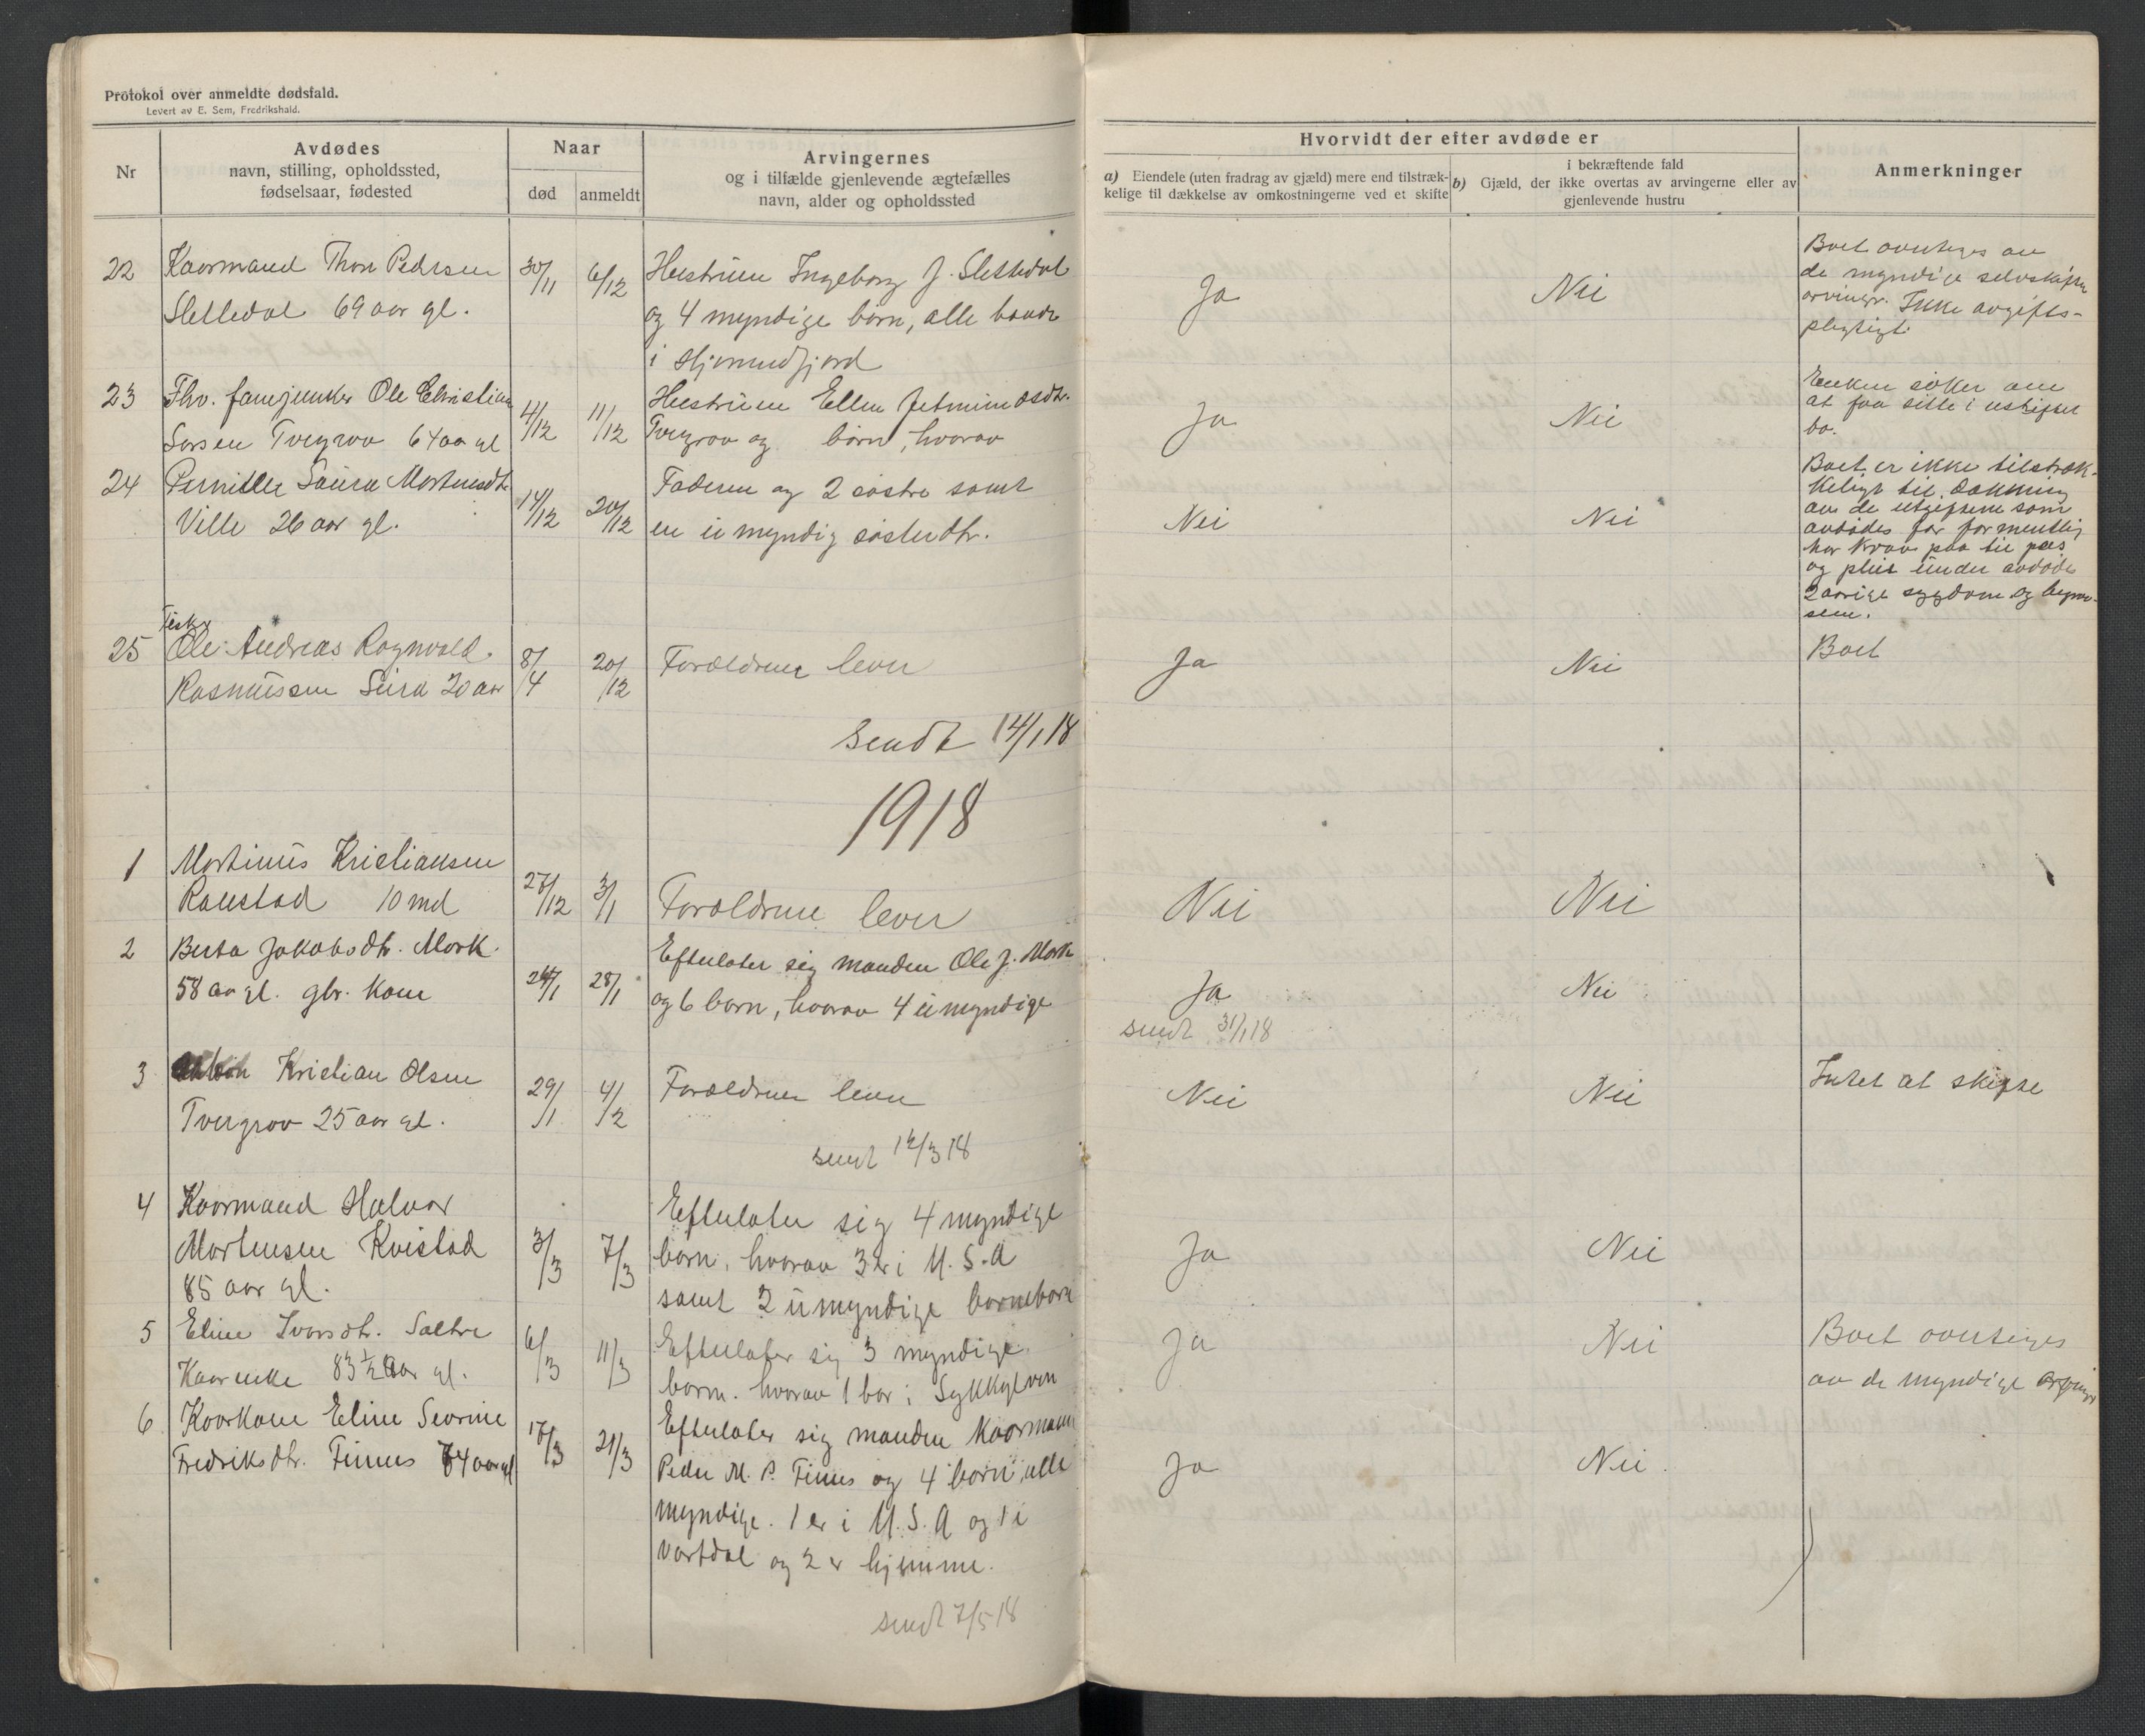 Protokol over anmeldte dødsfald.
Levert av E. Sem, Fredrikshald.
Nr
Avdødes
navn, stilling, opholdssted,
fødselsaar, fødested
Naar
død
anmeldt
Arvingernes
og i tilfælde gjenlevende ægtefælles
navn, alder og opholdssted
Hvorvidt der efter avdøde er
a) Eiendele (uten fradrag av gjæld) mere end tilstræk-
kelige til dækkelse av omkostningerne ved et skifte
i bekræftende fald
b) Gjæld, der ikke overtas av arvingerne eller av
gjenlevende hustru
Anmerkninger
22
Kaarmand Thore Pedersen
Slettedal 69 aar gl.
30/11
6/12
Hustruen Ingeborg J. Slettedal
og 4 myndige børn, alle
i Hjørundfjord
Ja
Nei
Boet overtages av
de myndige selvskiftende
arvinger. Ikke avgifts-
pligtigt.
23
Fhv. fanejunker Ole Christian
Larsen Tvergrov 64 aar gl
4/12
11/12
Hustruen Ellen
Tvergrov og børn, hvorav
Ja
Nei
Enken søker om
at faa sitte i uskiftet
bo.
24
Pernille Laura Mortensdtr.
Ville 26 aar gl.
14/12
20/12
Faderen og 2 søstre samt
en umyndig søsterdtr.
Nei
Nei
Boet er ikke tilstræk-
keligt til dækning
av de utgifterne som
avdødes far formentlig
har krav paa til pas
og pleie under avdødes
2 aarige sygdom og begravel-
sen.
25
Fisker
Ole Andreas Ragnvald
Rasmussen 20 aar
8/4
20/12
Forældrene lever
Ja
Nei
Boet
Sendt 14/1 18
1918
1
Martinus Kristiansen
Ramstad 10 md
27/12
3/1
Forældrene lever
Nei
Nei
2
Berta Jakobsdtr. Mork
58 aar gl. gbr. kone
24/1
28/1
Efterlater sig manden Ole J. Mork
og 6 børn, hvorav 4 umyndige
Ja
Nei
sendt 31/1 18
3
Kristian Olsen
Tvergrov 25 aar gl.
29/1
4/2
Forældrene lever
Nei
Nei
Intet at skifte
sendt 12/3 18
4
Kaarmand Halvor
Mortensen Kvistad
85 aar gl.
3/3
7/3
Efterlater sig 4 myndige
børn, hvorav 3 er i U.S.A
samt 2 umyndige barnebarn
Ja
Nei
5
Eline Ivarsdtr. Sætre
Kaarenke 83 ½ aar gl.
6/3
11/3
Efterlater sig 3 myndige
børn. hvorav 1 bor i Sykkylven
Ja
Nei
Boet overtages
av de myndige arvinger
6
Kaarkone Eline Severine
Fredriksdtr. Finnes 74 aar gl
17/3
21/3
Efterlater sig manden Kaarmann
Peder M. P. Finnes og 4 børn alle
myndige. 1 er i U.S.A og 1 i
Vartdal og 2 er hjemme.
Ja
Nei.
sendt 7/5 18